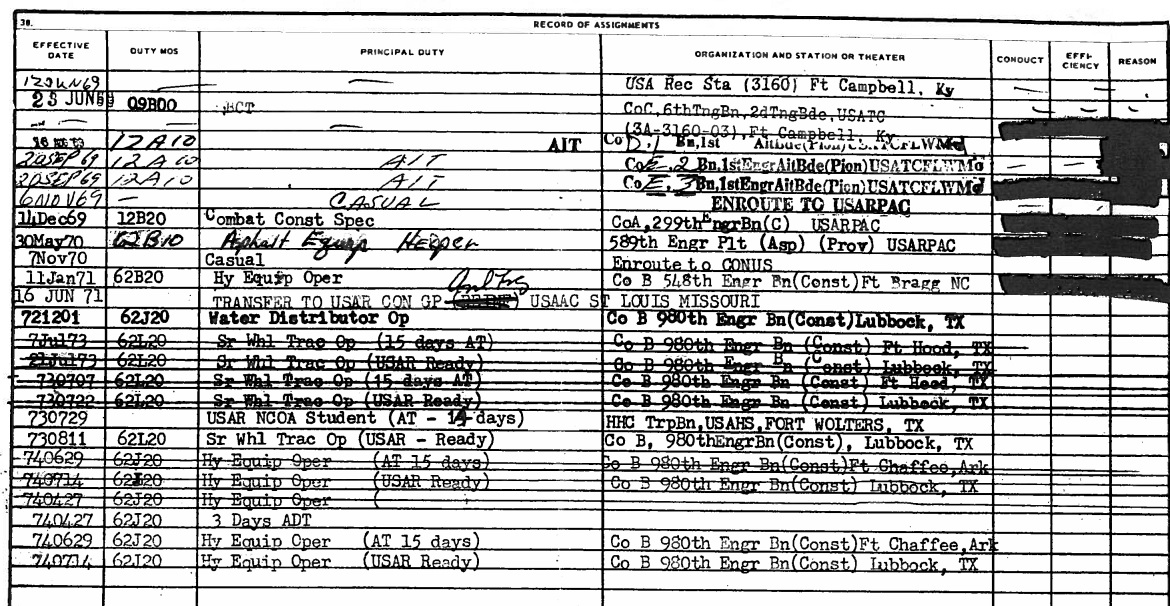 38. RECORD OF ASSIGNMENTS
EFFECTIVE DATE DUTY MOS PRINCIPAL DUTY ORGANIZATION AND STATION OR THEATER CONDUCT EFFI-CIENCY REASON
12JUN69 — USA Rec Sta (3160) Ft Campbell, Ky — —
23 JUN69 09B00 BCT CoC,6thTngBn,2dTngBde,USATC — — —
— — — (3A-3160-03),Ft Campbell, Ky
12A10 AIT Co D,1 Bn,1st AitBde(Pion)USATCFLWMo
20SEP69 12A10 AIT Co E, 2 Bn,1stEngrAitBde(Pion)USATCFLWMo
20SEP69 12A10 AIT Co E, 3 Bn,1stEngrAitBde(Pion)USATCFLWMo
6NOV69 — CASUAL ENROUTE TO USARPAC
14Dec69 12B20 Combat Const Spec CoA,299thEngrBn(C) USARPAC
30May70 62B10 Asphalt Equip Helper 589th Engr Plt (Asp) (Prov) USARPAC
7Nov70 Casual Enroute to CONUS
11Jan71 62B20 Hy Equip Oper Co B 548th Engr Bn(Const)Ft Bragg NC
16 JUN 71 TRANSFER TO USAR CON GP USAAC ST LOUIS MISSOURI
721201 62J20 Water Distributor Op Co B 980th Engr Bn(Const)Lubbock, TX
7Jul73 62L20 Sr Whl Trac Op (15 days AT) Co B 980th Engr Bn (Const) Ft Hood, TX
21Jul73 62L20 Sr Whl Trac Op (USAR Ready) Co B 980th Engr Bn (Const) Lubbock, TX
730707 62L20 Sr Whl Trac Op (15 days AT) Co B 980th Engr Bn (Const) Ft Hood, TX
730722 62L20 Sr Whl Trac Op (USAR Ready) Co B 980th Engr Bn (Const) Lubbock, TX
730729 USAR NCOA Student (AT - 14 days) HHC TrpBn,USAHS,FORT WOLTERS, TX
730811 62L20 Sr Whl Trac Op (USAR - Ready) Co B, 980thEngrBn(Const), Lubbock, TX
740629 62J20 Hy Equip Oper (AT 15 days) Co B 980th Engr Bn(Const)Ft Chaffee,Ark
740714 62J20 Hy Equip Oper (USAR Ready) Co B 980th Engr Bn(Const) Lubbock, TX
740427 62J20 Hy Equip Oper (
740427 62J20 3 Days ADT
740629 62J20 Hy Equip Oper (AT 15 days) Co B 980th Engr Bn(Const)Ft Chaffee,Ark
740714 62J20 Hy Equip Oper (USAR Ready) Co B 980th Engr Bn(Const) Lubbock, TX